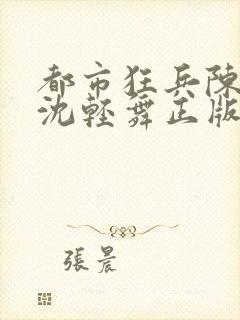 都市狂兵陳
沈輕舞正版
張晨